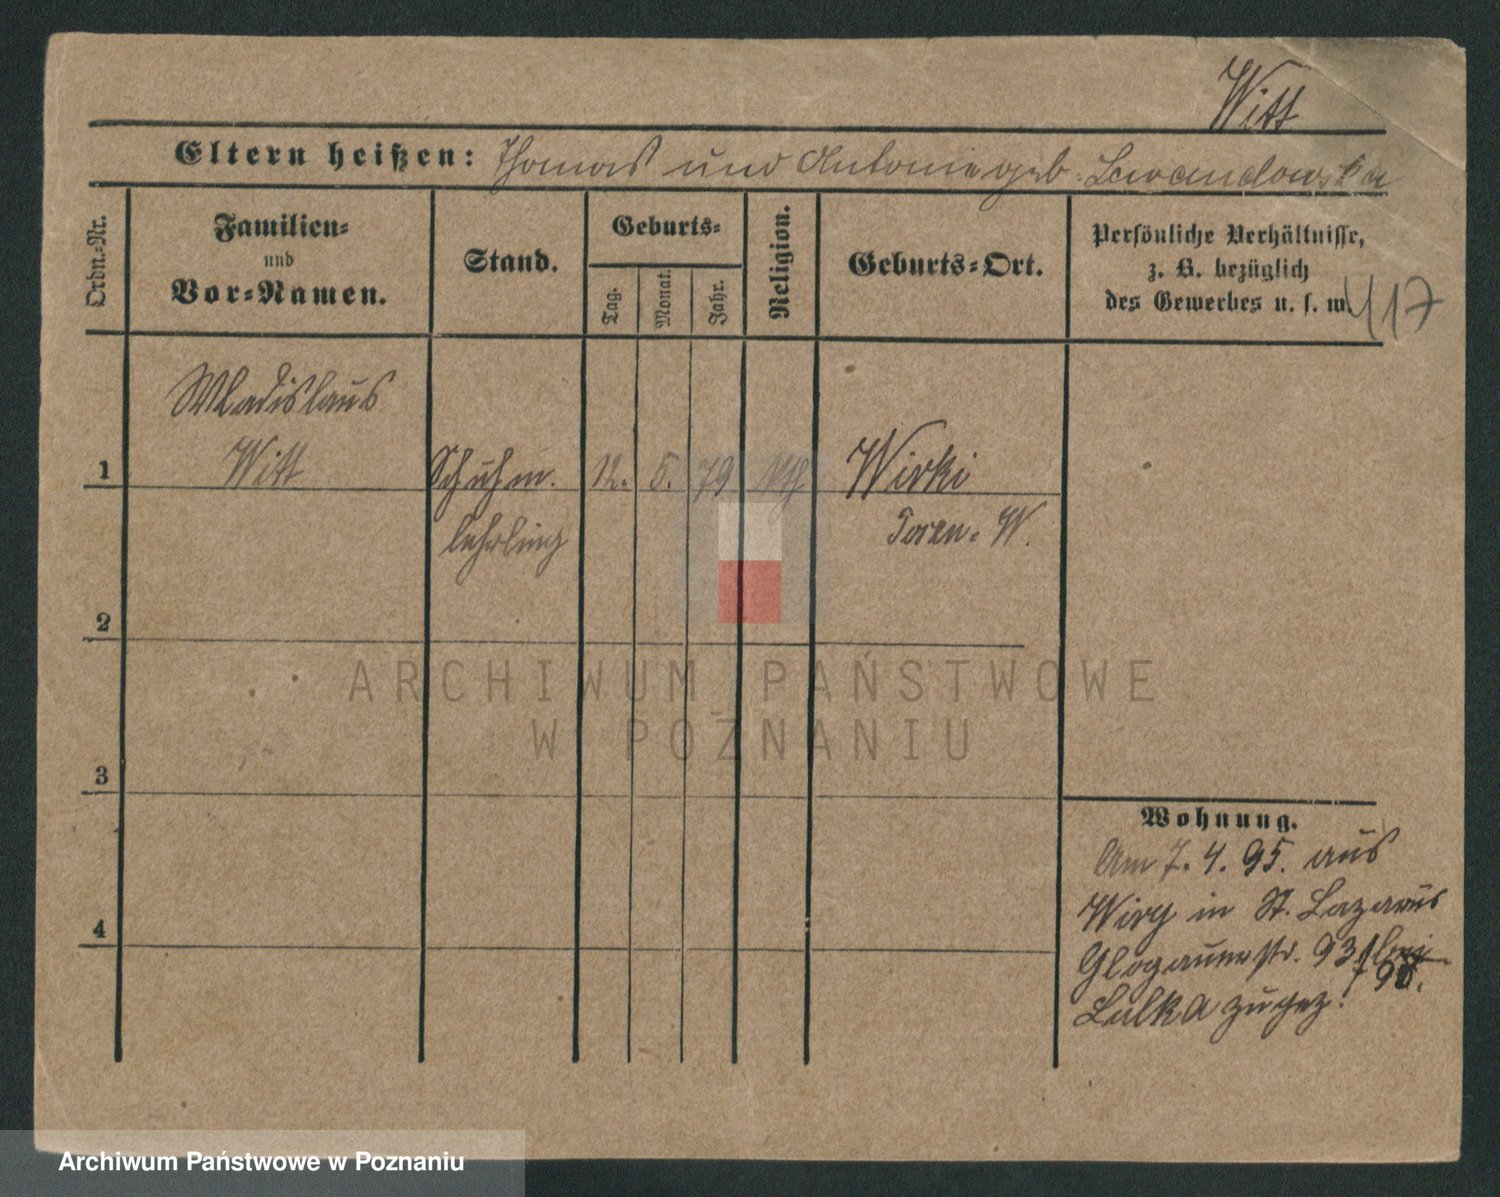 Witt
Eltern heißen: Thomas und Antonie geb. Lewandowska
Ordn.-Nr.
Familien-
und
Vor-Namen.
Stand.
Geburts-
Tag.
Monat.
Jahr.
Religion.
Geburts-Ort.
Persönliche Verhältnisse,
z. B. bezüglich
des Gewerbes u. s. w.
417
Wladislaus
1 Witt Schuhm. 12. 5. 79 kth Wirki
lehrling Posen-W.
2
3
4
Wohnung.
Am 7. 4. 95. aus
Wiry in St. Lazarus
Glogauerstr. 93 bei
98.
Lulka zugez.
ARCHIWUM PAŃSTWOWE
W POZNANIU
Archiwum Państwowe w Poznaniu